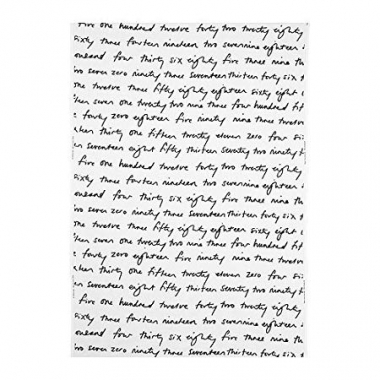 five one hundred twelve forty two twenty eighty
sixty three fourteen nineteen two sevennine eighteen
ousand four thirty six eighty five three nine
two seven zero ninety three seventeen thirteen forty six
three fifty eighty eighteen sixty eight
seven one twenty two nine four hundred
forty zero eighteen five ninety three twelve
thirty one fifteen twenty eleven zero four
seventeen eight fifty thirteen seventy two ninety
five one hundred twelve forty two twenty eighty
sixty three fourteen nineteen two sevennine eighteen
ousand four thirty six eighty five three nine
two seven zero ninety three seventeen thirteen forty
three fifty eighty eighteen sixty eight
seven one twenty two nine four hundred
forty zero eighteen five ninety three twelve
thirty one fifteen twenty eleven zero four
seventeen eight fifty thirteen seventy two ninety
five one hundred twelve forty two twenty eighty
sixty three fourteen nineteen two sevennine eighteen
ousand four thirty six eighty five three nine
two seven zero ninety three seventeen thirteen forty